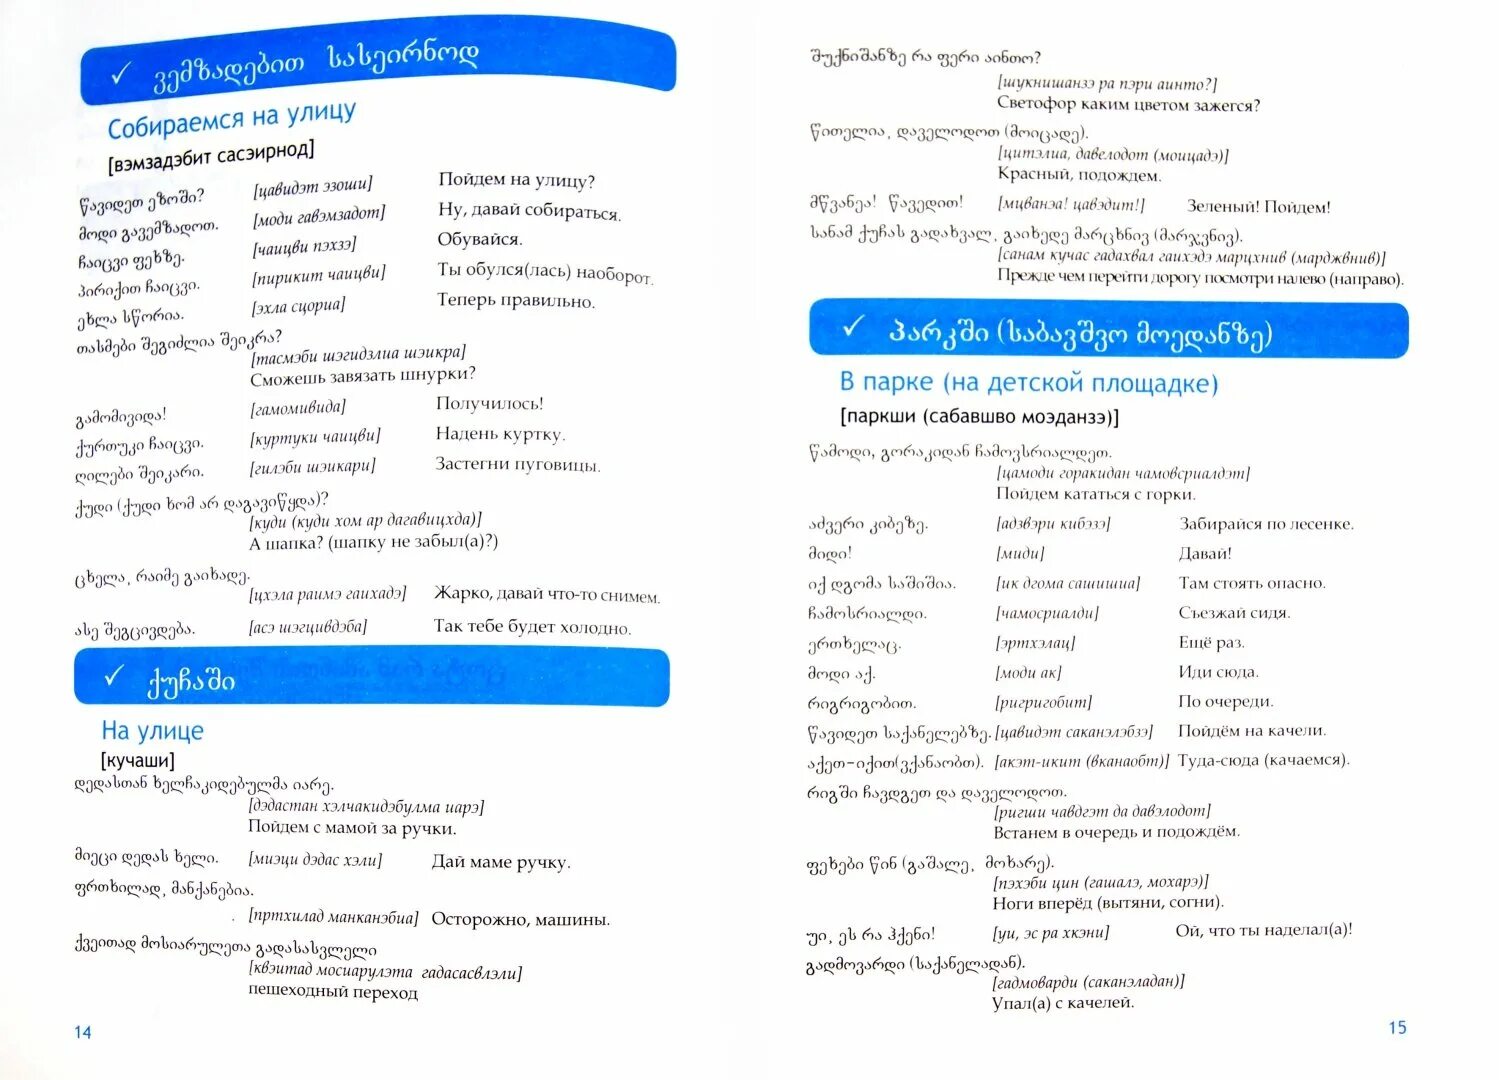 ✓ ვემზადებით სასეირნოდ
Собираемся на улицу
[вэмзадэбит сасэирнод]
წავიდეთ ეზოში? [цавидэт эзоши] Пойдем на улицу?
მოდი გავემზადოთ. [моди гавэмзадот] Ну, давай собираться.
ჩაიცვი ფეხზე. [чаицви пэхзэ] Обувайся.
პირიქით ჩაიცვი. [пирикит чаицви] Ты обулся(лась) наоборот.
ეხლა სწორია. [эхла сцориа] Теперь правильно.
თასმები შეგიძლია შეიკრა?
[тасмэби шэгидзлиа шэикра]
Сможешь завязать шнурки?
გამომივიდა! [гамомивида] Получилось!
ქურთუკი ჩაიცვი. [куртуки чаицви] Надень куртку.
ღილები შეიკარი. [гилэби шэикари] Застегни пуговицы.
ქუდი (ქუდი ხომ არ დაგავიწყდა)?
[куди (куди хом ар дагавицхда)]
А шапка? (шапку не забыл(а)?)
ცხელა, რაიმე გაიხადე.
[цхэла раимэ гаихадэ] Жарко, давай что-то снимем.
ასე შეგცივდება. [асэ шэгцивдэба] Так тебе будет холодно.
✓ ქუჩაში
На улице
[кучаши]
დედასთან ხელჩაკიდებულმა იარე.
[дэдастан хэлчакидэбулма иарэ]
Пойдем с мамой за ручки.
მიეცი დედას ხელი. [миэци дэдас хэли] Дай маме ручку.
ფრთხილად, მანქანებია.
. [пртхилад манканэбиа] Осторожно, машины.
ქვეითად მოსიარულეთა გადასასვლელი
[квэитад мосиарулэта гадасасвлэли]
пешеходный переход
14
შუქნიშანზე რა ფერი აინთო?
[шукнишанзэ ра пэри аинто?]
Светофор каким цветом зажегся?
წითელია, დაველოდოთ (მოიცადე).
[цитэлиа, давелодот (моицадэ)]
Красный, подождем.
მწვანეა! წავედით! [мцванэа! цавэдит!] Зеленый! Пойдем!
სანამ ქუჩას გადახვალ, გაიხედე მარცხნივ (მარჯვნივ).
[санам кучас гадахвал гаихэдэ марцхнив (марджвнив)]
Прежде чем перейти дорогу посмотри налево (направо).
✓ პარკში (საბავშვო მოედანზე)
В парке (на детской площадке)
[паркши (сабавшво моэданзэ)]
წამოდი, გორაკიდან ჩამოვსრიალდეთ.
[цамоди горакидан чамовсриалдэт]
Пойдем кататься с горки.
აძვერი კიბეზე. [адзвэри кибэзэ] Забирайся по лесенке.
მიდი! [миди] Давай!
იქ დგომა საშიშია. [ик дгома сашишиа] Там стоять опасно.
ჩამოსრიალდი. [чамосриалди] Съезжай сидя.
ერთხელაც. [эртхэлац] Ещё раз.
მოდი აქ. [моди ак] Иди сюда.
რიგრიგობით. [ригригобит] По очереди.
წავიდეთ საქანელებზე. [цавидэт саканэлэбзэ] Пойдём на качели.
აქეთ-იქით(ვქანაობთ). [акэт-икит (вканаобт)] Туда-сюда (качаемся).
რიგში ჩავდგეთ და დაველოდოთ.
[ригши чавдгэт да давэлодот]
Встанем в очередь и подождём.
ფეხები წინ (გაშალე, მოხარე).
[пэхэби цин (гашалэ, мохарэ)]
Ноги вперёд (вытяни, согни).
უი, ეს რა ჰქენი! [уи, эс ра хкэни] Ой, что ты наделал(а)!
გადმოვარდი (საქანელადან).
[гадмоварди (саканэладан)]
Упал(а) с качелей.
15